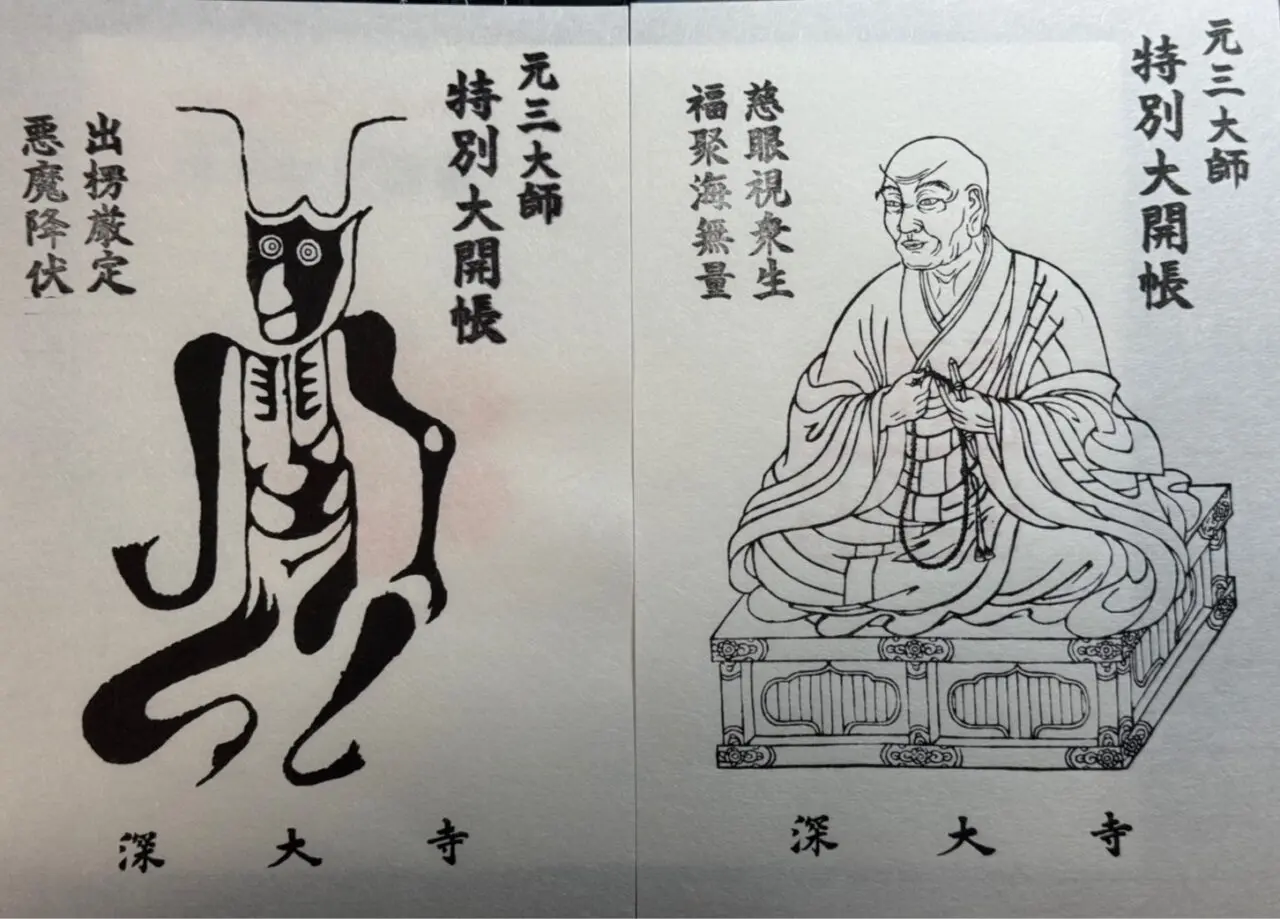 元三大師
特別大開帳
出楞厳定
悪魔降伏
深大寺
元三大師
特別大開帳
慈眼視衆生
福聚海無量
深大寺